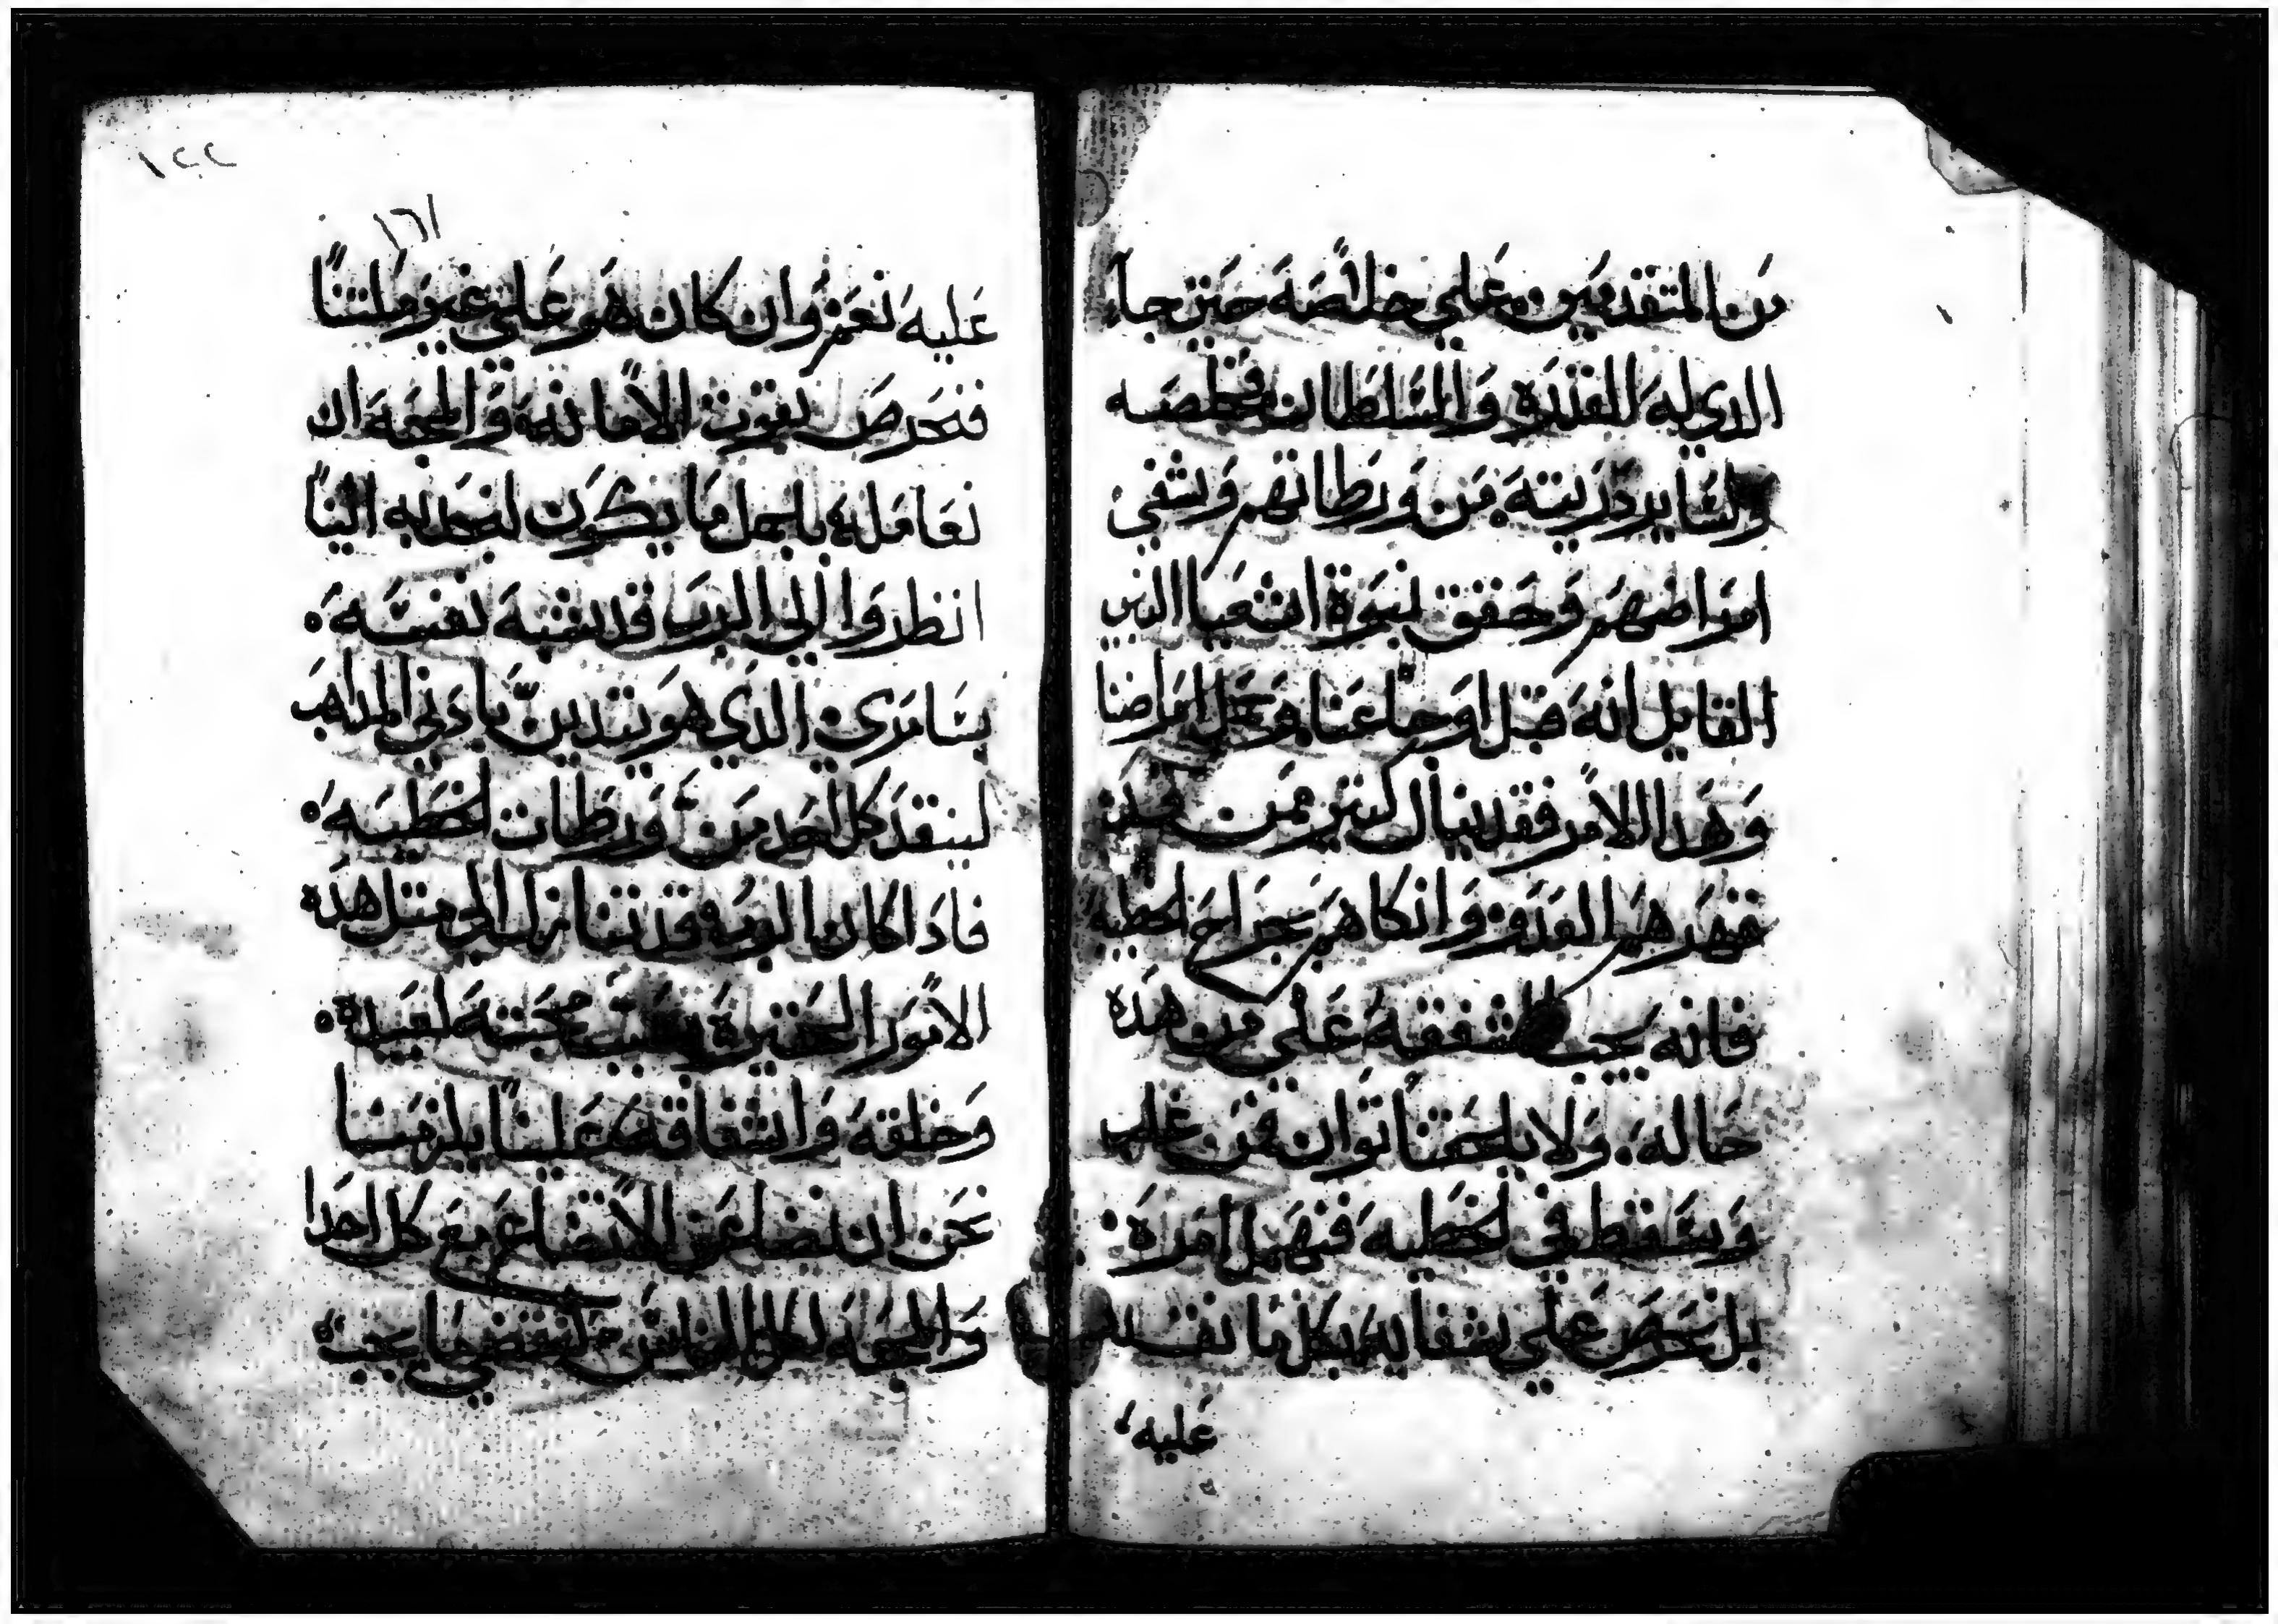 من المتقدمين على خلاصه حين جآ
الدي له القدره والسلطان فخلصه
ولساير دريته من ورطاتهم وشفي
امراضهم وحقق نبوة اشعيا النبي
القايل انه قبل اوجاعنا وحمل امراضنا
وهدا الامر فقد ينال كتير ممن
قهرهم العدو وانكاهم بجراح الخطيه
فانه يجب الشفقه على من هده
حاله. ولا يلحقنا توان فمن غلب
وسقط في الخطيه فنهمل امره.
بل نحرص على شفايه بكل ما نقدر
عليه
١٢١
١٢٢
عليه نعم وان كان هو على غير ملتنا
فنحرص بقوت الامانه والمحبه ان
نعامله باجمل ما يكون لنجدبه الينا
انظروا الى الرب قد شبه نفسه.
بسامري الدي هو يتدين بادني المداهب
لينقد كل احد من ورطات الخطيه.
فادا كان الرب قد تنازل الى متل هده
الامور الحقيره بسبب محبته لعبيده.
وخلقه واشفاقه علينا يلزمنا
نحن ان نضاعف الاتضاع مع كل احدا
والمحبه لكل الناس لنقضي ما يجب